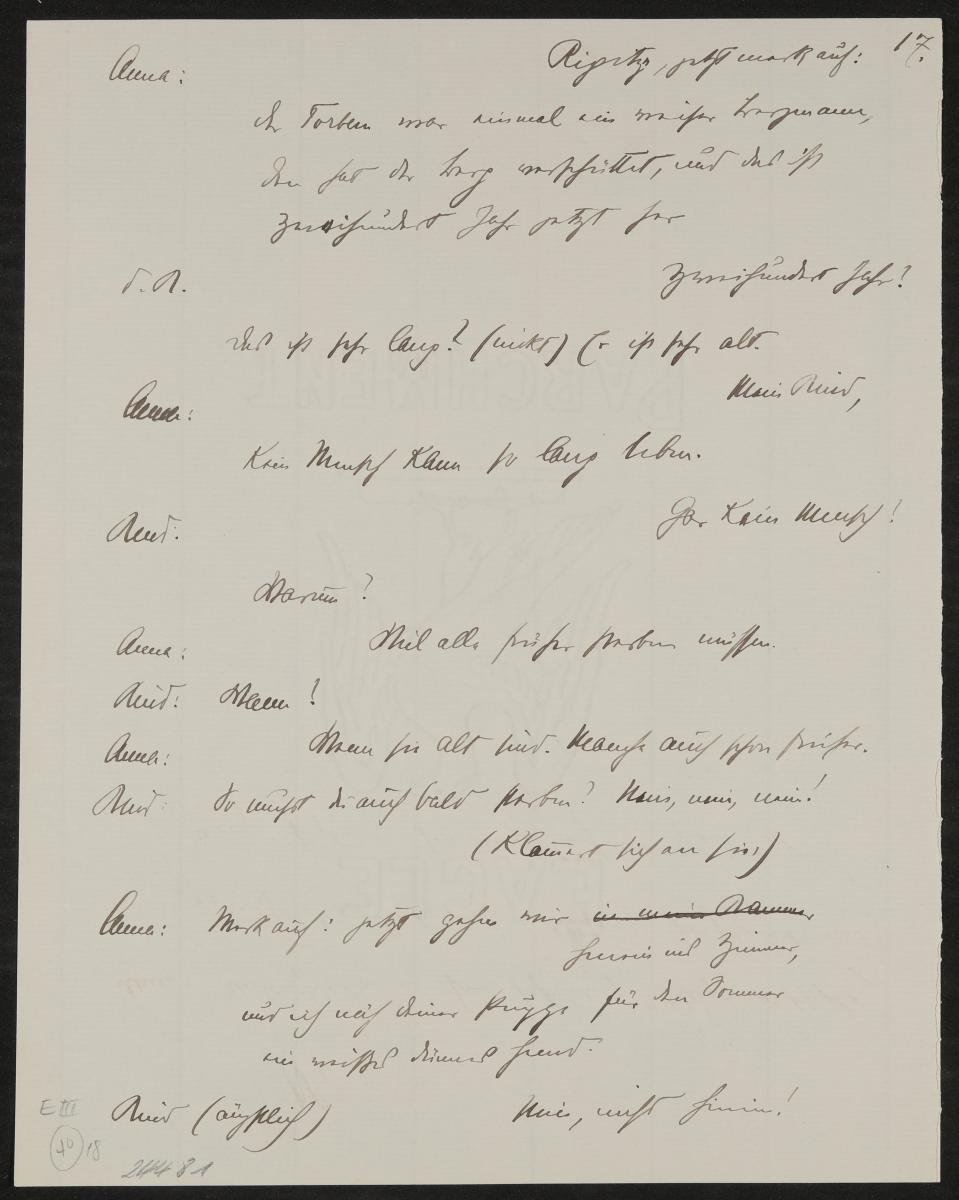 17.
Anna: Ripitz, jetzt merk auf:
der Torbern war einmal ein reicher Bergmann,
den hat der Berg verschüttet, und das ist
zweihundert Jahr jetzt her
d. K. Zweihundert Jahr?
das ist sehr lang? (nickt) Er ist sehr alt.
Anna: Mein Kind,
Kein Mensch kann so lang leben.
Kind: Gar kein Mensch!
Warum?
Anna: Weil alle früher sterben müssen.
Kind: Wann?
Anna: Wenn sie alt sind. Manche auch schon früher.
Kind: So musst du auch bald sterben? Nein, nein, nein!
(Klammert sich an sie)
Anna: Merk auf: jetzt gehen wir in meine Kammer
herein ins Zimmer,
und ich näh deiner Puppe für den Sommer
ein weisses dünnes Hemd.
Kind (ängstlich) Nein, nicht hinein!
E III
40 18
24481